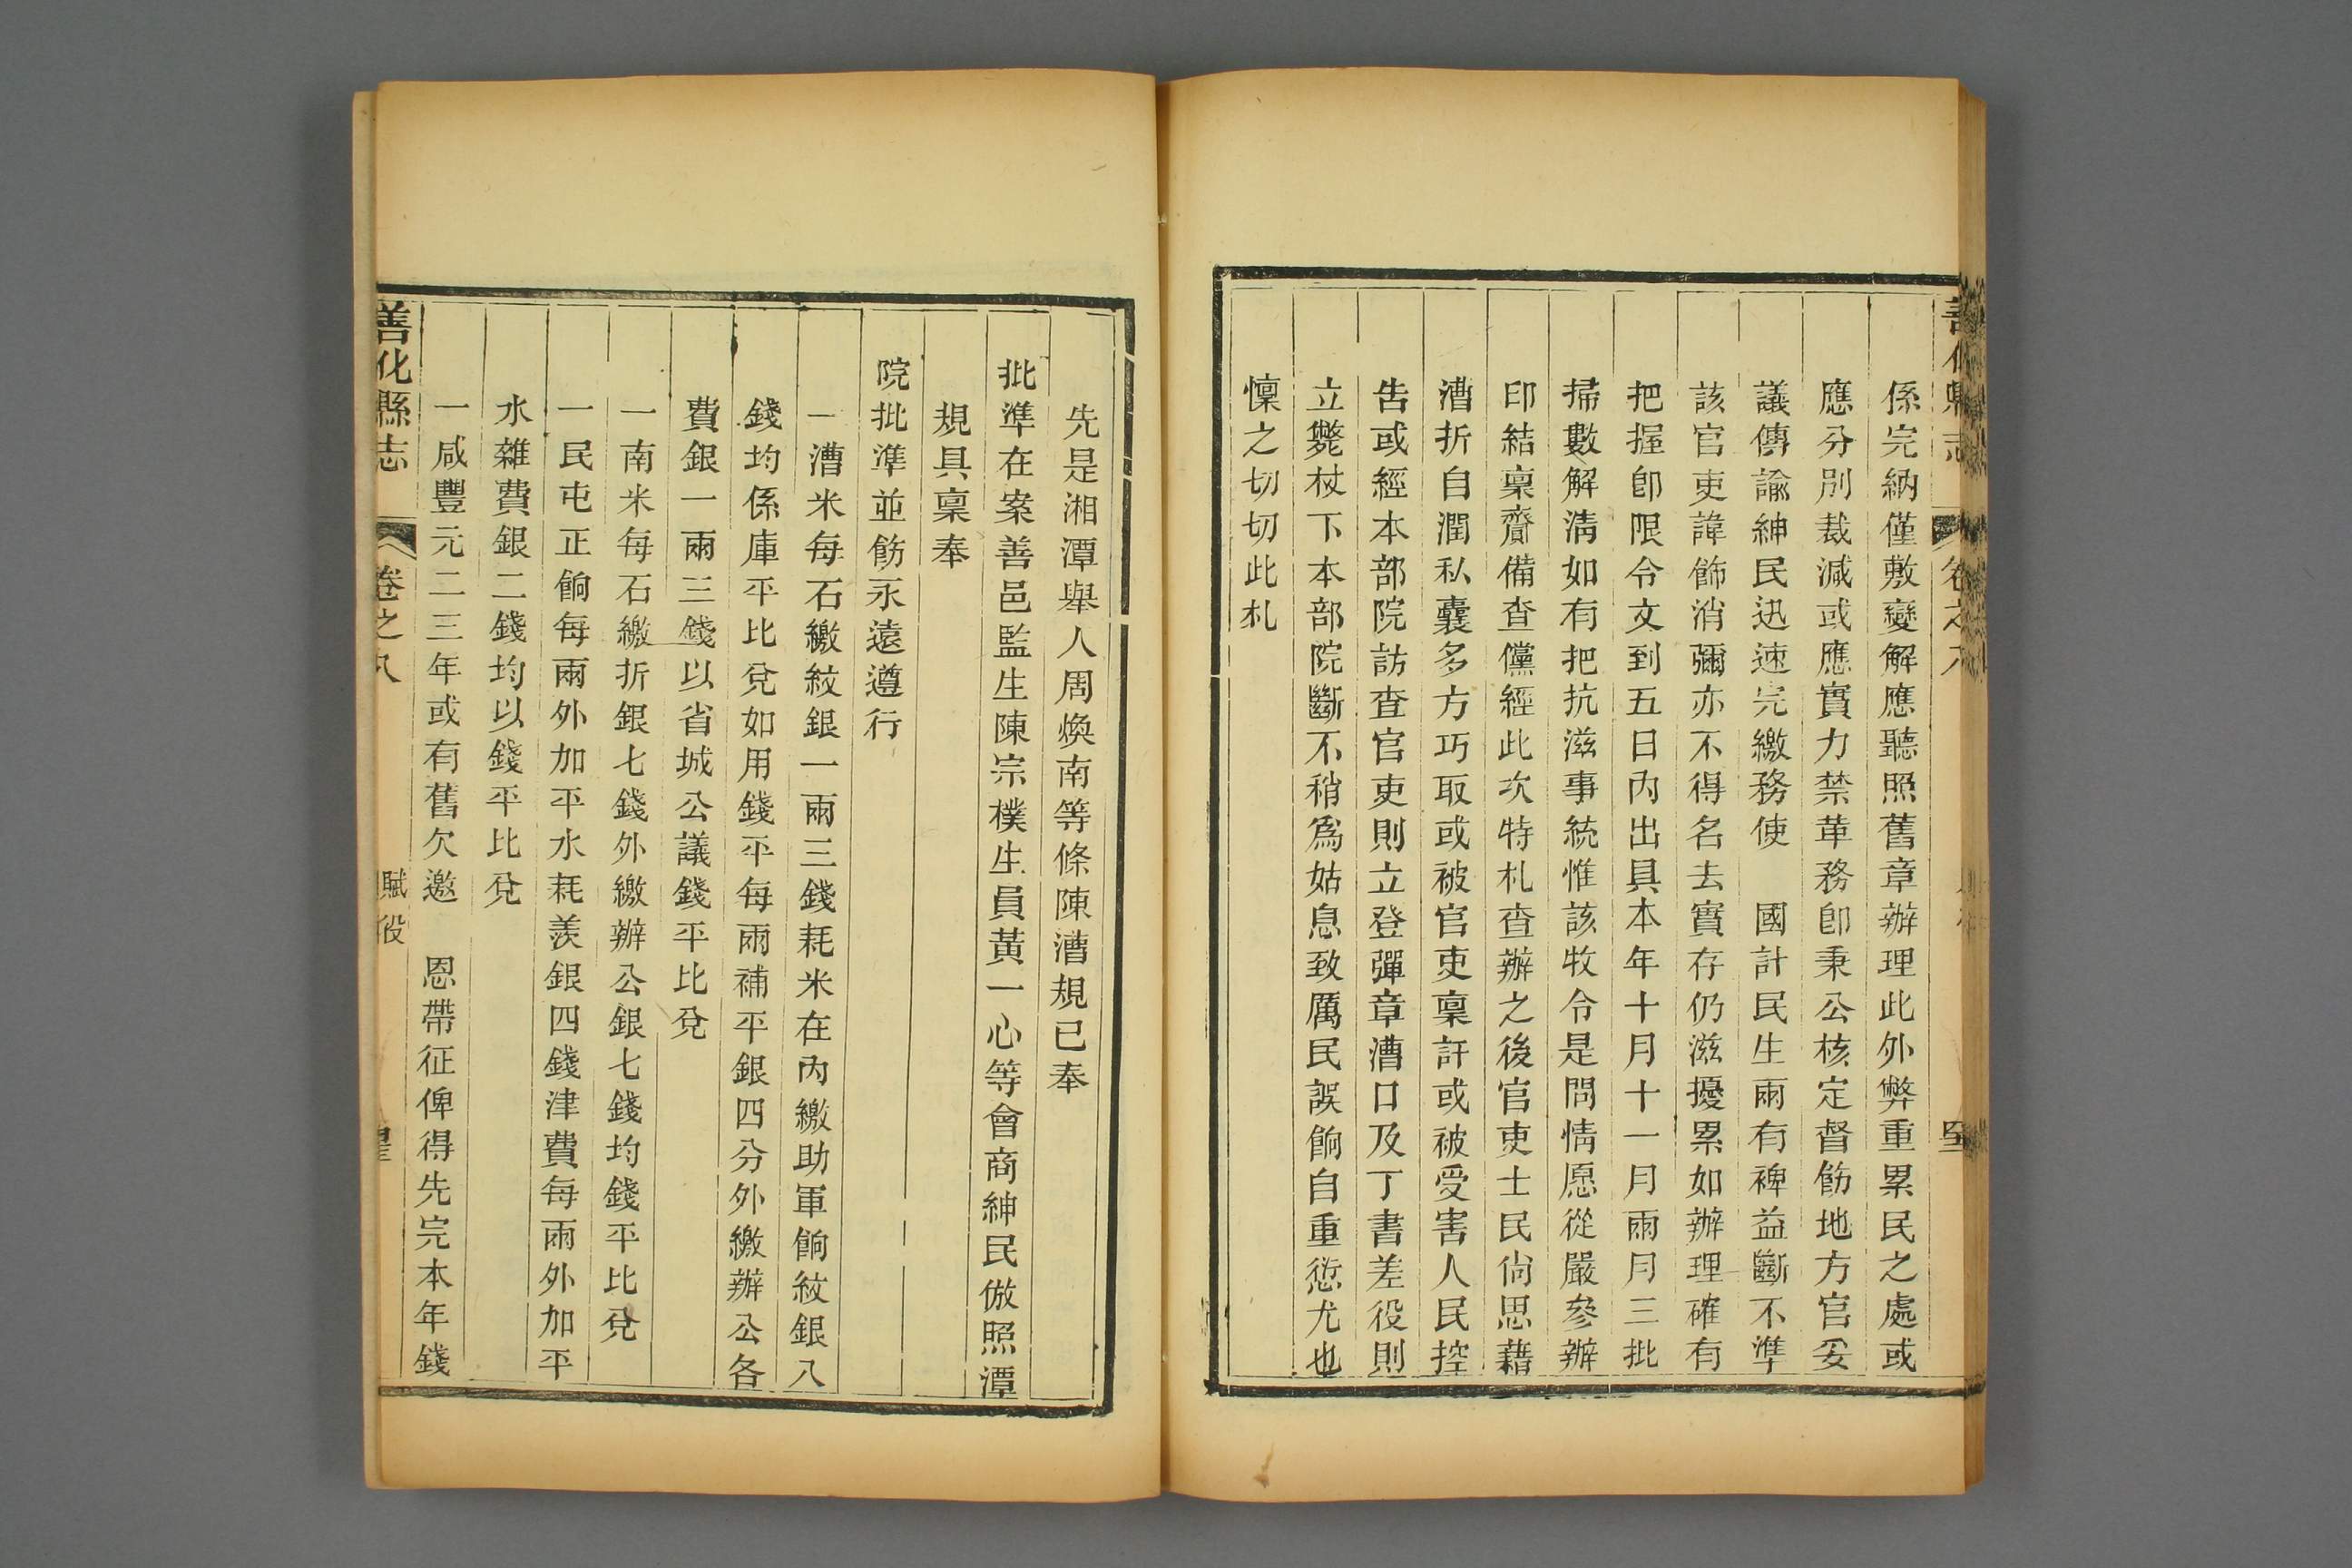 係完納僅敷變解應聽照舊章辦理此外弊重累民之處或
應分別裁減或應實力禁革務卽秉公核定督飭地方官妥
議傳諭紳民迅速完繳務使　國計民生兩有裨益斷不準
該官吏諱飾消彌亦不得名去實存仍滋擾累如辦理確有
把握卽限令文到五日內出具本年十月十一月兩月三批
掃數解清如有把抗滋事統惟該牧令是問情愿從嚴參辦
印結稟齎備查儻經此次特札查辦之後官吏士民尙思藉
漕折自潤私囊多方巧取或被官吏稟訐或被受害人民控
告或經本部院訪查官吏則立登彈章漕口及丁書差役則
立斃杖下本部院斷不稍爲姑息致厲民誤餉自重愆尤也
懍之切切此札
先是湘潭舉人周煥南等條陳漕規已奉
批準在案善邑監生陳宗樸生員黃一心等會商紳民倣照潭
規具稟奉
院批準並飭永遠遵行
一漕米每石繳紋銀一兩三錢耗米在內繳助軍餉紋銀八
錢均係庫平比兌如用錢平每兩補平銀四分外繳辦公各
費銀一兩三錢以省城公議錢平比兌
一南米每石繳折銀七錢外繳辦公銀七錢均錢平比兌
一民屯正餉每兩外加平水耗羨銀四錢津費每兩外加平
水雜費銀二錢均以錢平比兌
一咸豐元二三年或有舊欠邀　恩帶征俾得先完本年錢
善化縣志　卷之八　賦役